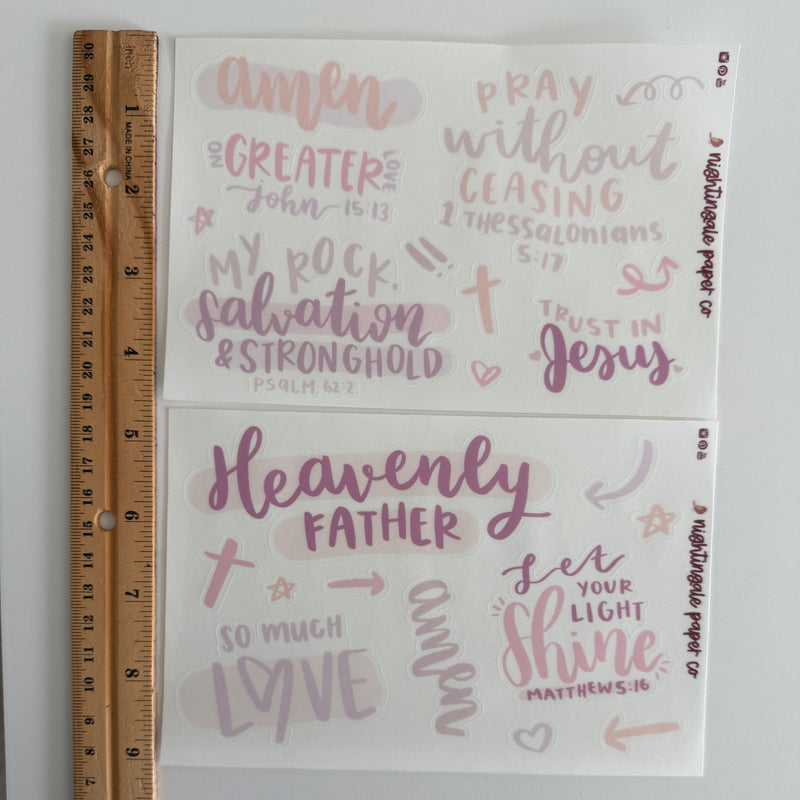 amen
NO GREATER LOVE
John 15:13
PRAY
without
CEASING
1 Thessalonians
5:17
MY ROCK,
salvation
& STRONGHOLD
PSALM 62:2
TRUST IN
Jesus
nightingale paper co
Heavenly
FATHER
SO MUCH
LOVE
amen
Let
YOUR
LIGHT
Shine
MATTHEW 5:16
nightingale paper co
30 29 28 27 26 25 24 23 22 21 20 19 18 17 16 15 14 13 12 11 10 9 8 7
1 2 3 4 5 6 7 8 9
MADE IN CHINA